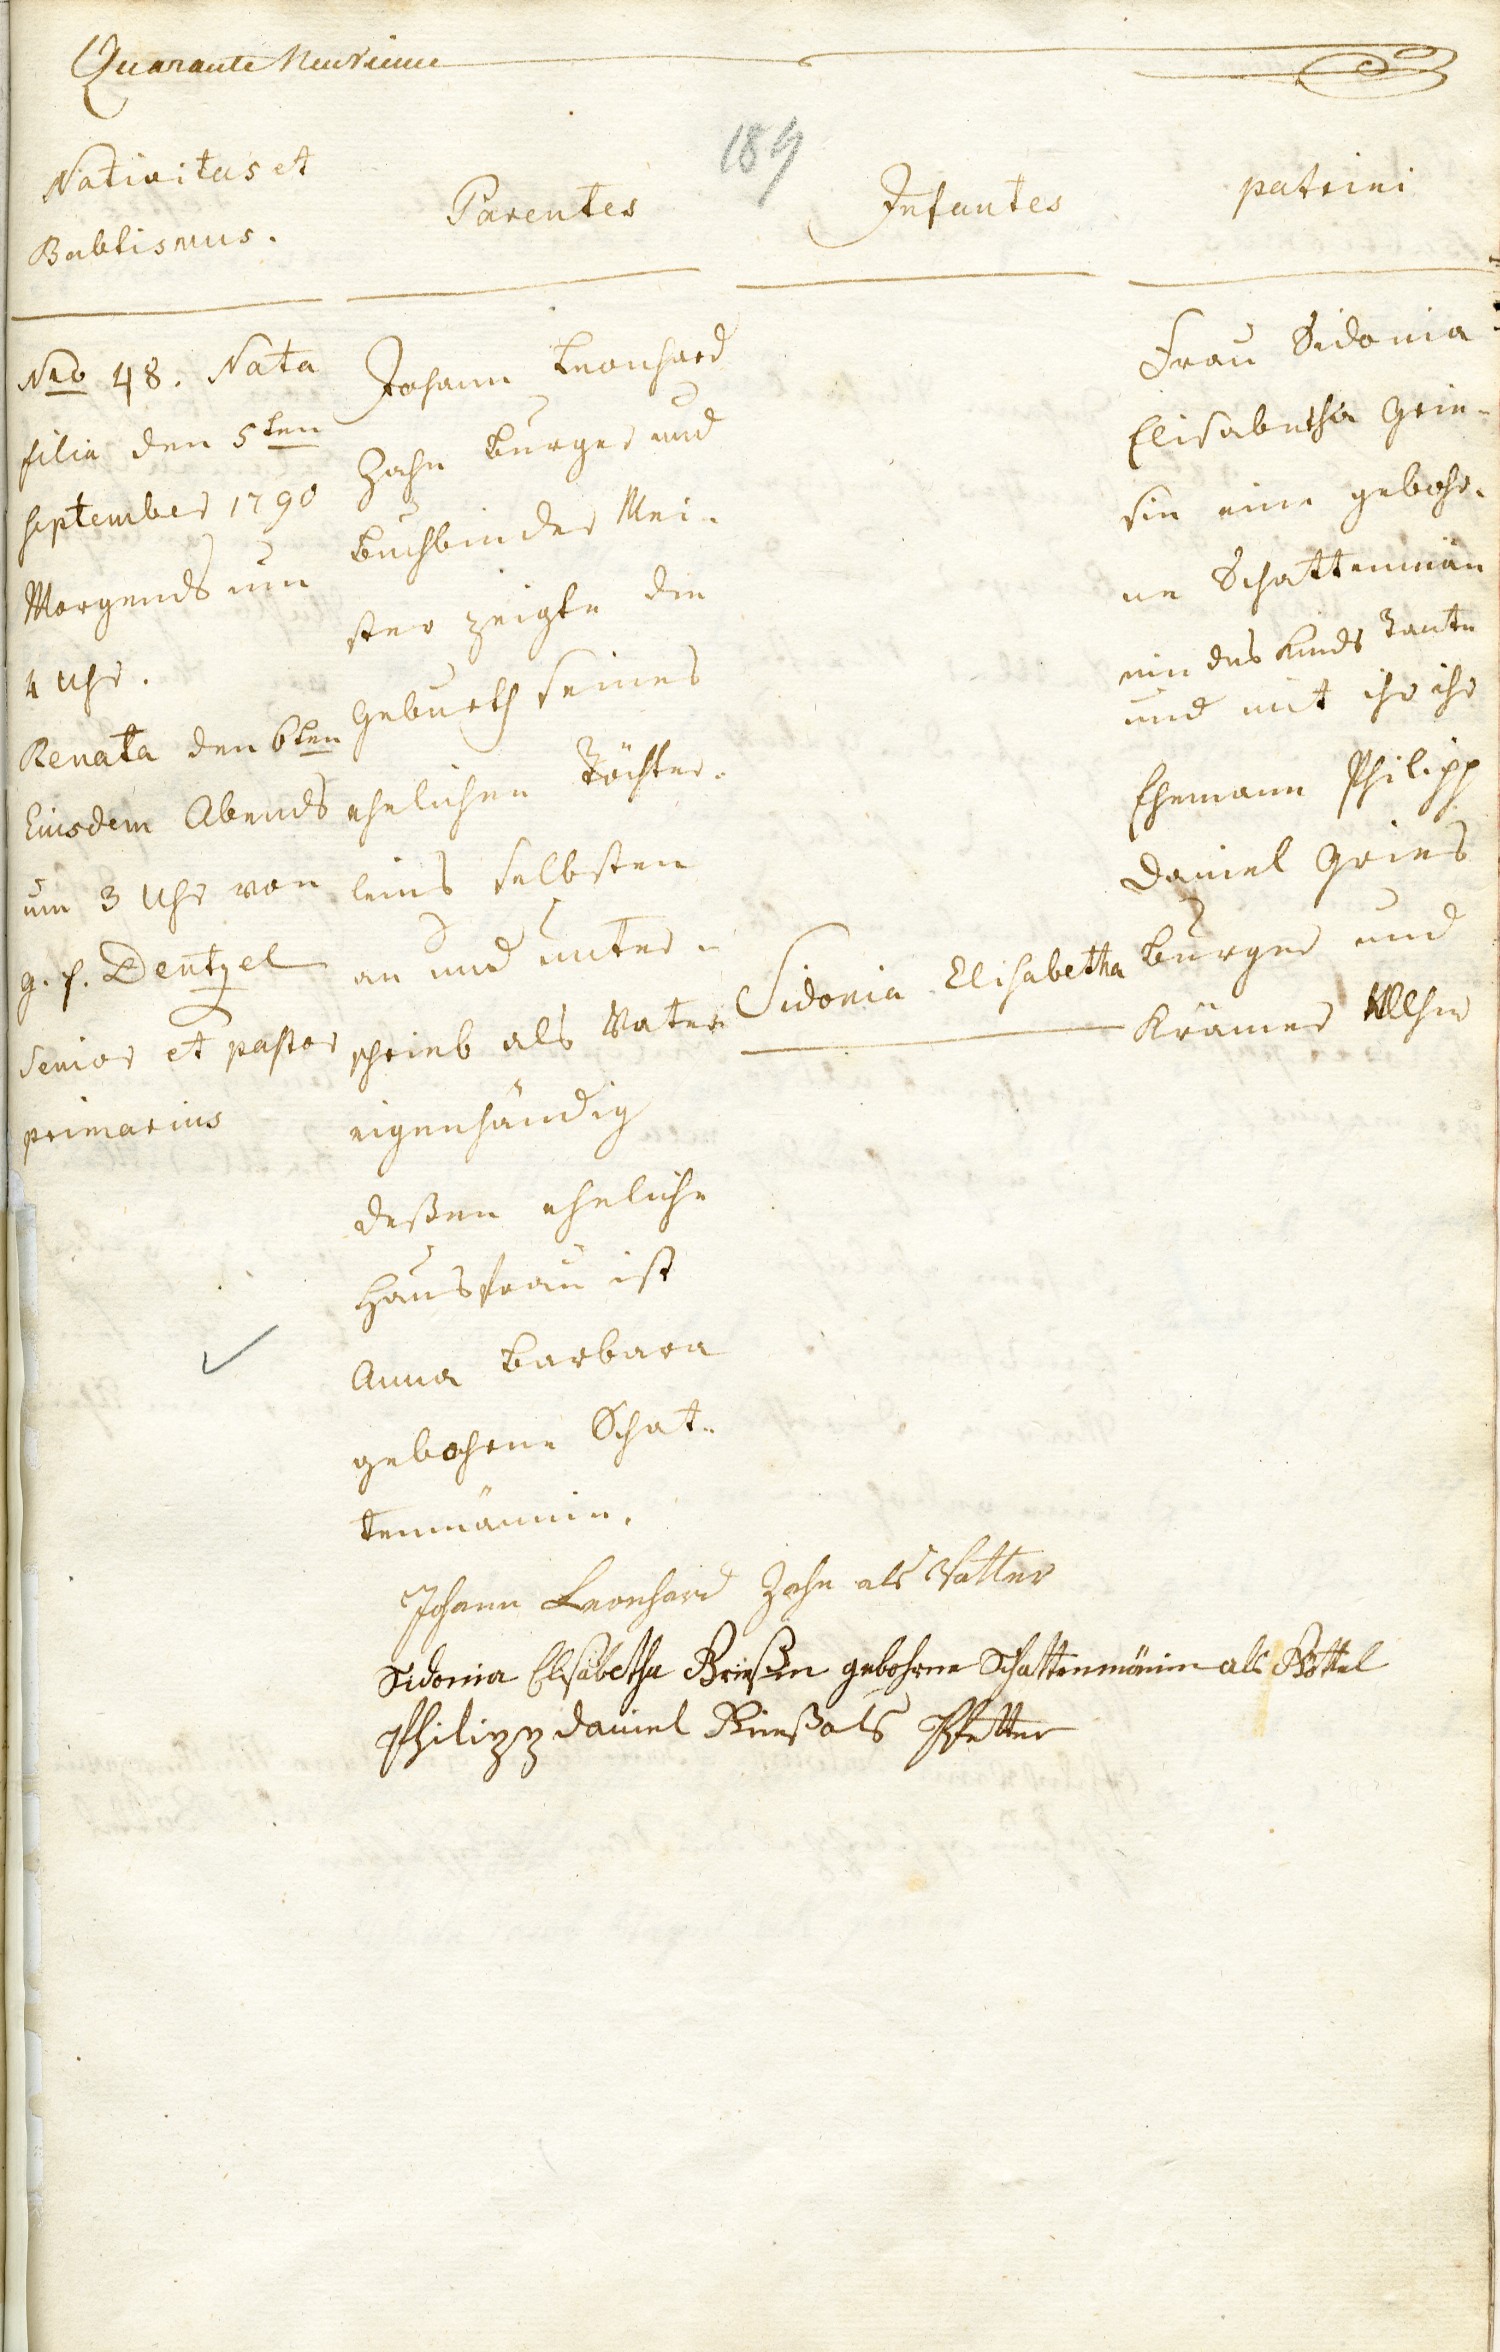 Quarante Neuvieme
189
Nativitas et
Babtismus.
Parentes
Infantes
patrini
Nro 48. Nata
filia den 5ten
September 1790
Morgends um
4 Uhr.
Renata den 6ten
Eiusdem Abends
um 3 Uhr von
g. f. Dentzel
Senior et pastor
primarius
Johann Leonhard
Zahn Burger und
Buchbinder Mei-
ster zeigte die
Geburth seines
ehelichen Töchter-
leins selbsten
an und unter-
schrieb als Vater
eigenhändig
deßen eheliche
Hausfrau ist
Anna Barbara
gebohrene Schat-
tenmännin.
Sidonia Elisabetha
Frau Sidonia
Elisabetha Grie-
sin eine gebohr-
ne Schattenmän
nin des Kinds Tante
und mit ihr ihr
Ehemann Philipp
Daniel Gries
Burger und
Krämer Allhier
Johann Leonhard Zahn als Vatter
Sidonia Elisabetha Grießin gebohrne Schattenmänin als Göttel
Philipp Daniel Grieß als Pfetter